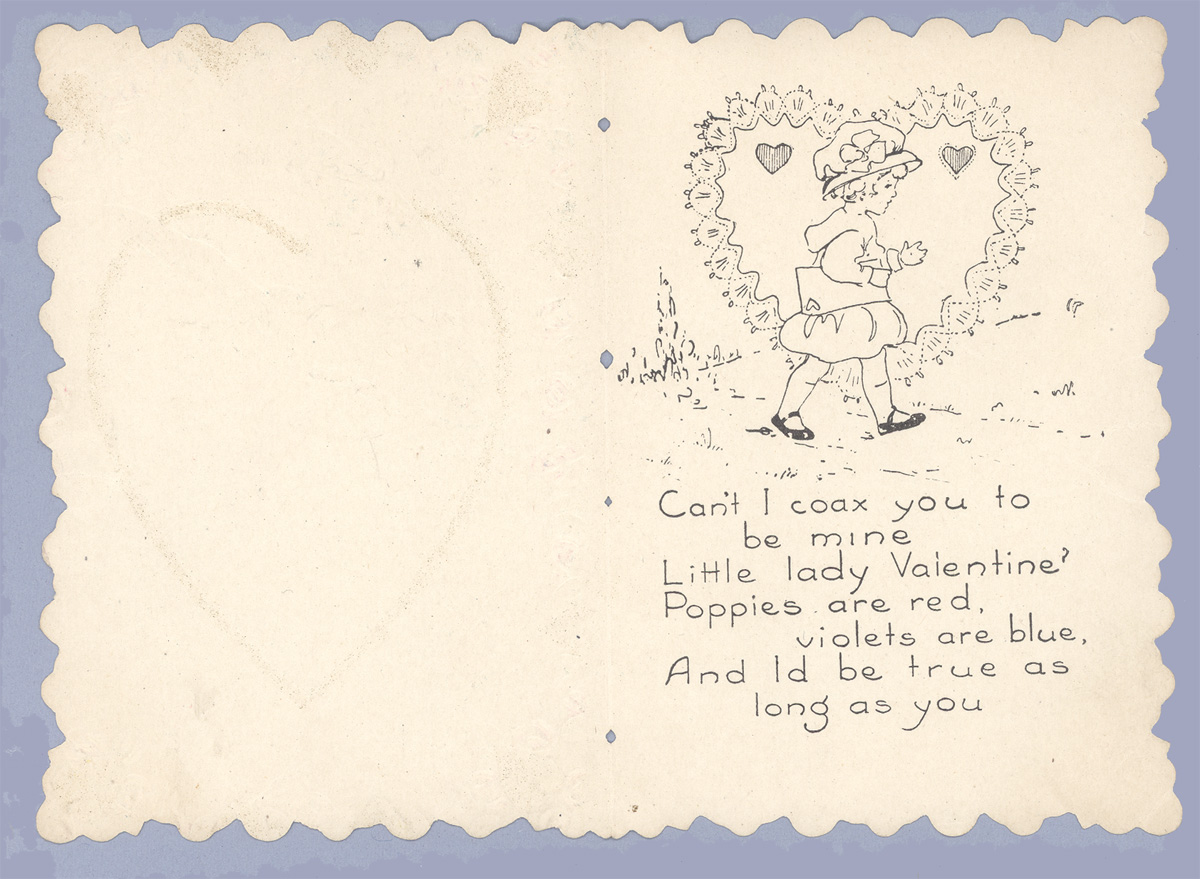 Can't I coax you to
be mine
Little lady Valentine?
Poppies are red,
violets are blue,
And Id be true as
long as you